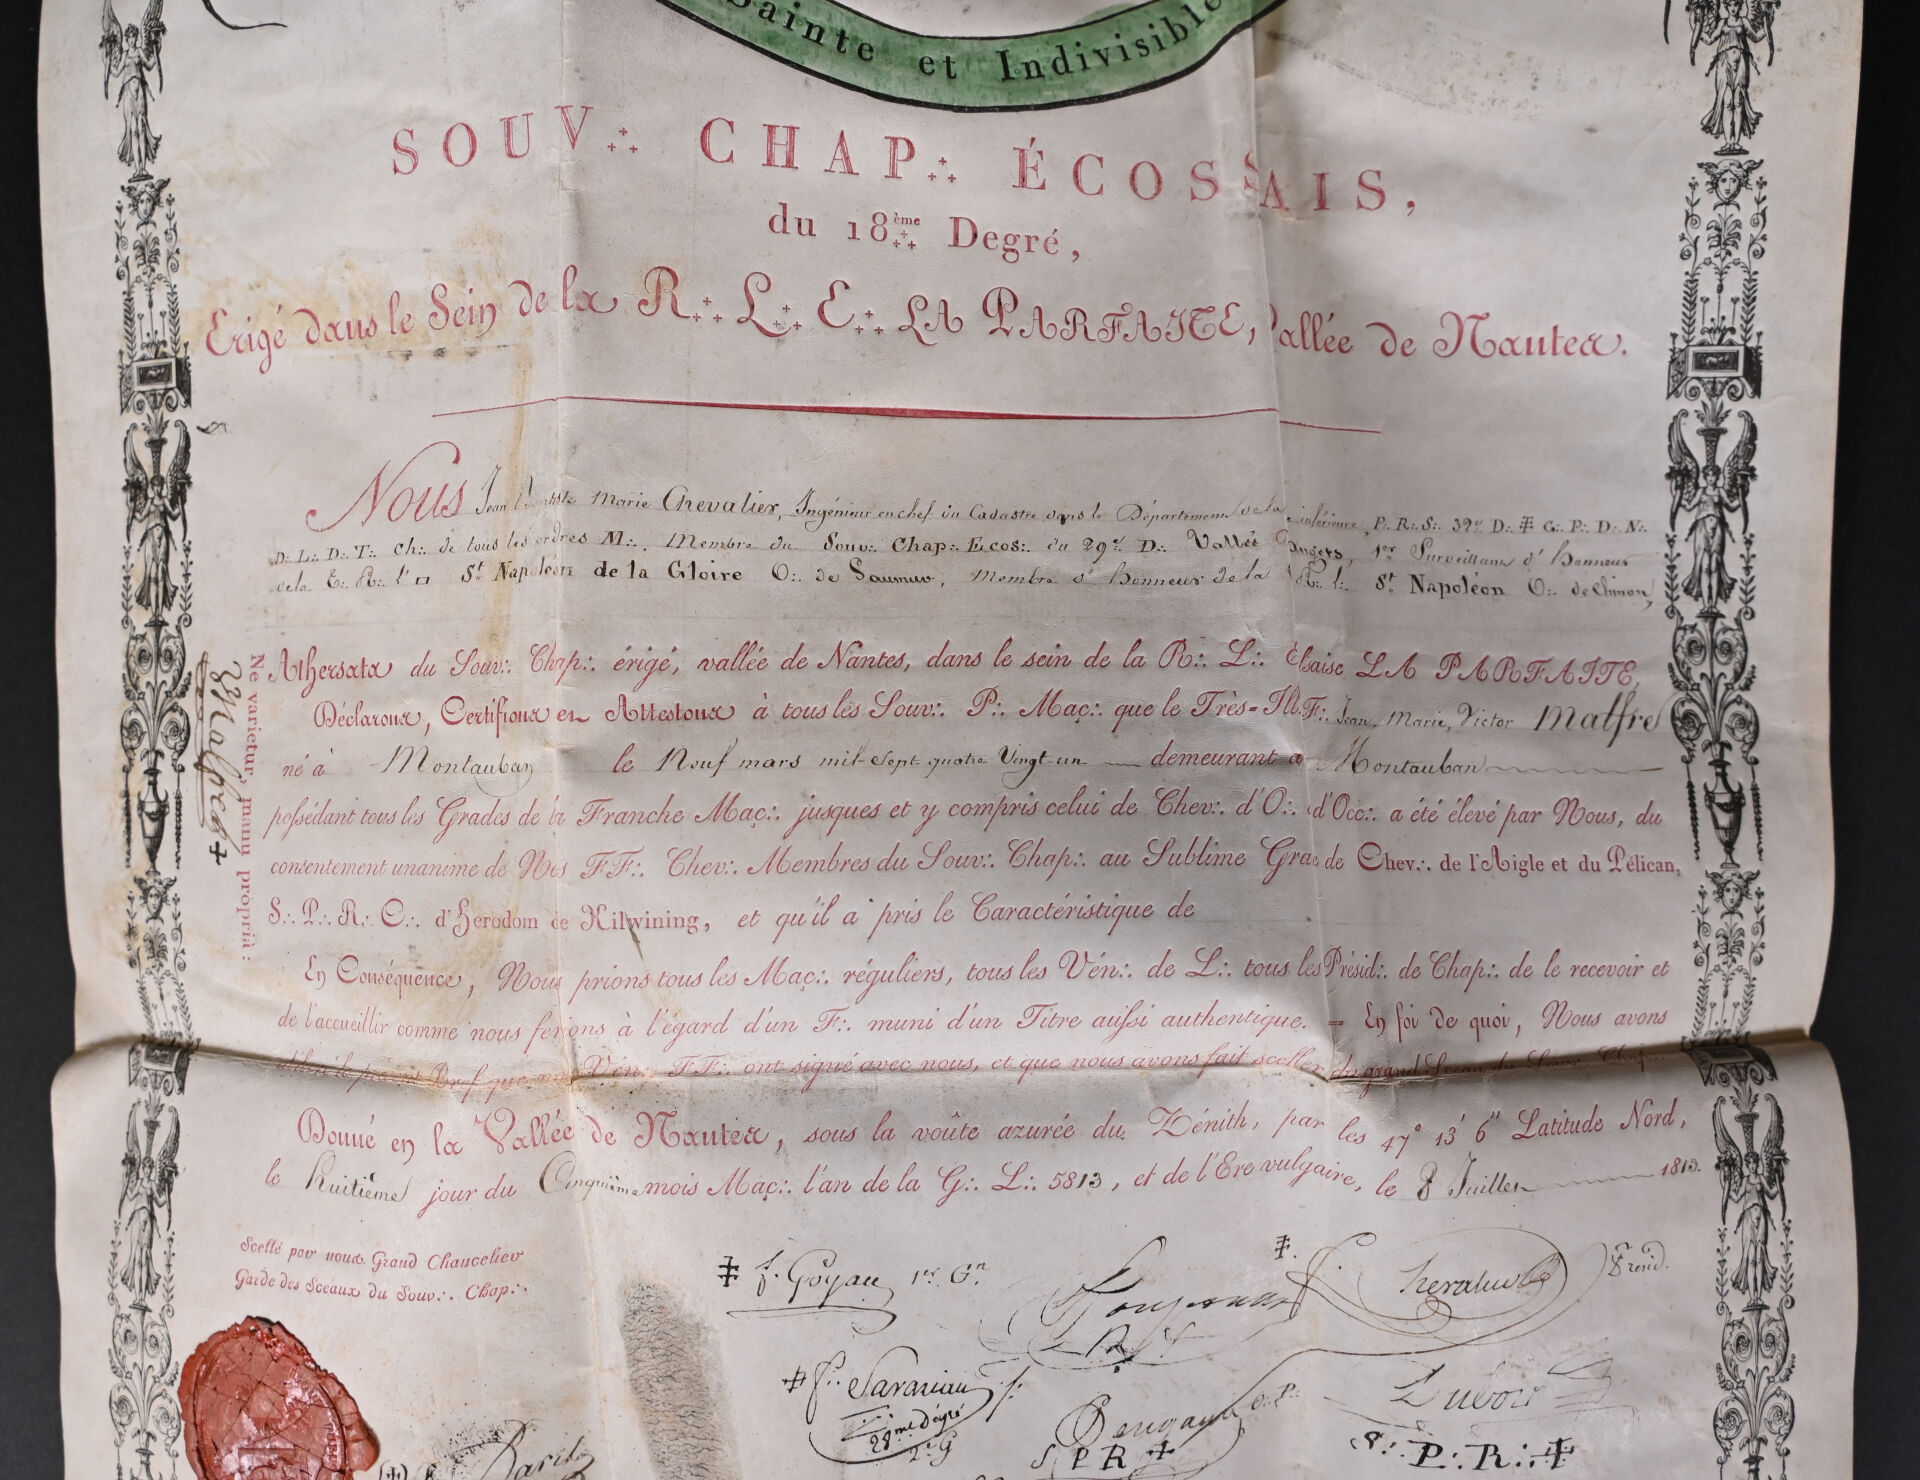 Sainte et Indivisible
SOUV∴ CHAP∴ ÉCOSSAIS,
du 18ème∴ Degré,
Erigé dans le Sein de la R∴ L∴ E∴ LA PARFAITE, Vallée de Nantes.
Nous Jean Baptiste Marie Chevalier, Ingénieur en chef du Cadastre dans le Département de la inférieure, P∴ R∴ S∴ 32e D∴ ‡ G∴ P∴ D∴ N∴
D∴ L∴ D∴ T∴ Ch∴ de tous les ordres M∴, Membre du Souv∴ Chap∴ Ecos∴ du 29e D∴ Vallée Angers, 1er Surveillant d'honneur
de la E∴ R∴ l'□ St Napoléon de la Gloire O∴ de Saumur, Membre d'honneur de la R∴ L∴ St Napoléon O∴ de Chinon,
Athersata du Souv∴ Chap∴ érigé, vallée de Nantes, dans le sein de la R∴ L∴ Ecossaise LA PARFAITE,
Déclarons, Certifions et Attestons à tous les Souv∴ P∴ Maç∴ que le Très-Ill F∴ Jean, Marie, Victor Malfre
né à Montauban le Neuf mars mil Sept quatre Vingt un demeurant a Montauban
possédant tous les Grades de la Franche Maç∴ jusques et y compris celui de Chev∴ d'O∴ d'Occ∴ a été élevé par Nous, du
consentement unanime de Nos FF∴ Chev∴ Membres du Souv∴ Chap∴ au Sublime Grade de Chev∴ de l'Aigle et du Pélican,
S∴ P∴ R∴ C∴ d'Herodom de Kilwining, et qu'il a pris le Caractéristique de
En Conséquence, Nous prions tous les Maç∴ réguliers, tous les Vén∴ de L∴ tous les Présid∴ de Chap∴ de le recevoir et
de l'accueillir comme nous ferions à l'égard d'un F∴ muni d'un Titre aussi authentique. = En foi de quoi, Nous avons
délivré le présent Bref que nos Vén∴ FF∴ ont signé avec nous, et que nous avons fait sceller du grand Sceau du Souv∴ Chap∴
Donné en la Vallée de Nantes, sous la voûte azurée du Zénith, par les 47° 13' 6" Latitude Nord,
le huitième jour du Cinquième mois Maç∴ l'an de la G∴ L∴ 5813, et de l'Ere vulgaire, le 8 Juillet 1813.
Ne varietur, manu propriâ:
Malfre ‡
Scellé par nous Grand Chancelier
Garde des Sceaux du Souv∴ Chap∴
‡ f∴ Goyau 1er Gn
‡ f∴ Chevalier
Présid.
‡ f∴ Savariau
28me dégré
2e G
Dubois
S P R ‡
S∴ P∴ R∴ ‡